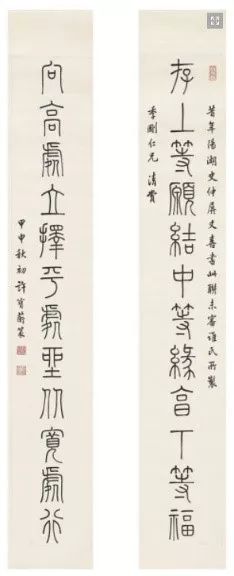 昔年陽湖史仲屏丈喜書此聯未審誰氏所製
存上等願結中等緣享下等福
季剛仁兄 清賞
向高處立擇平處坐从寬處行
甲申秋初許寶蘅篆